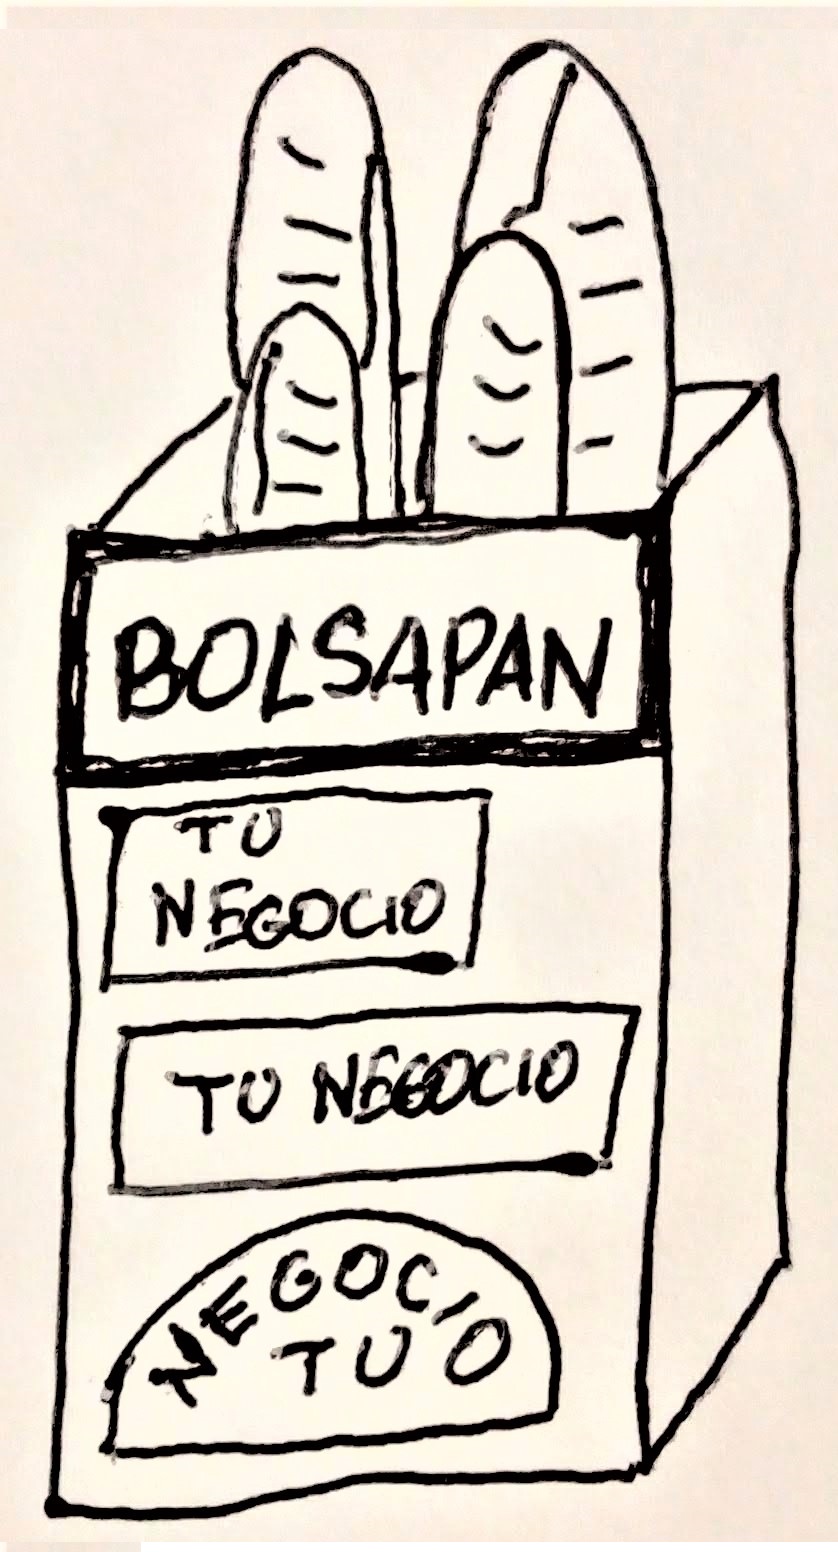 BOLSAPAN
TU
NEGOCIO
TU NEGOCIO
NEGOCIO
TU